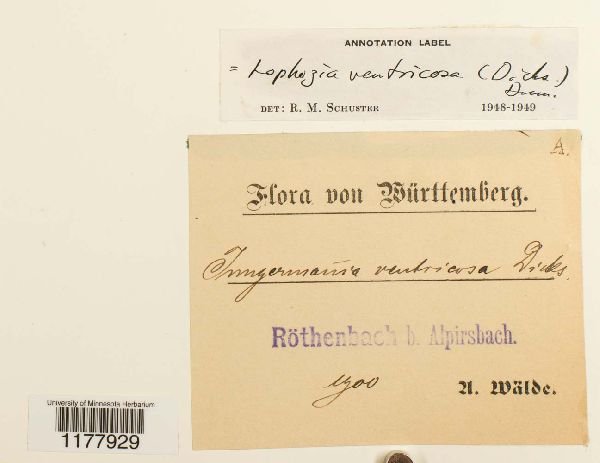 ANNOTATION LABEL
= Lophozia ventricosa (Dicks.)
Dum.
DET: R. M. SCHUSTER 1948-1949
A.
Flora von Württemberg.
Jungermannia ventricosa Dicks.
Röthenbach b. Alpirsbach.
1900 A. Wälde.
University of Minnesota Herbarium
1177929